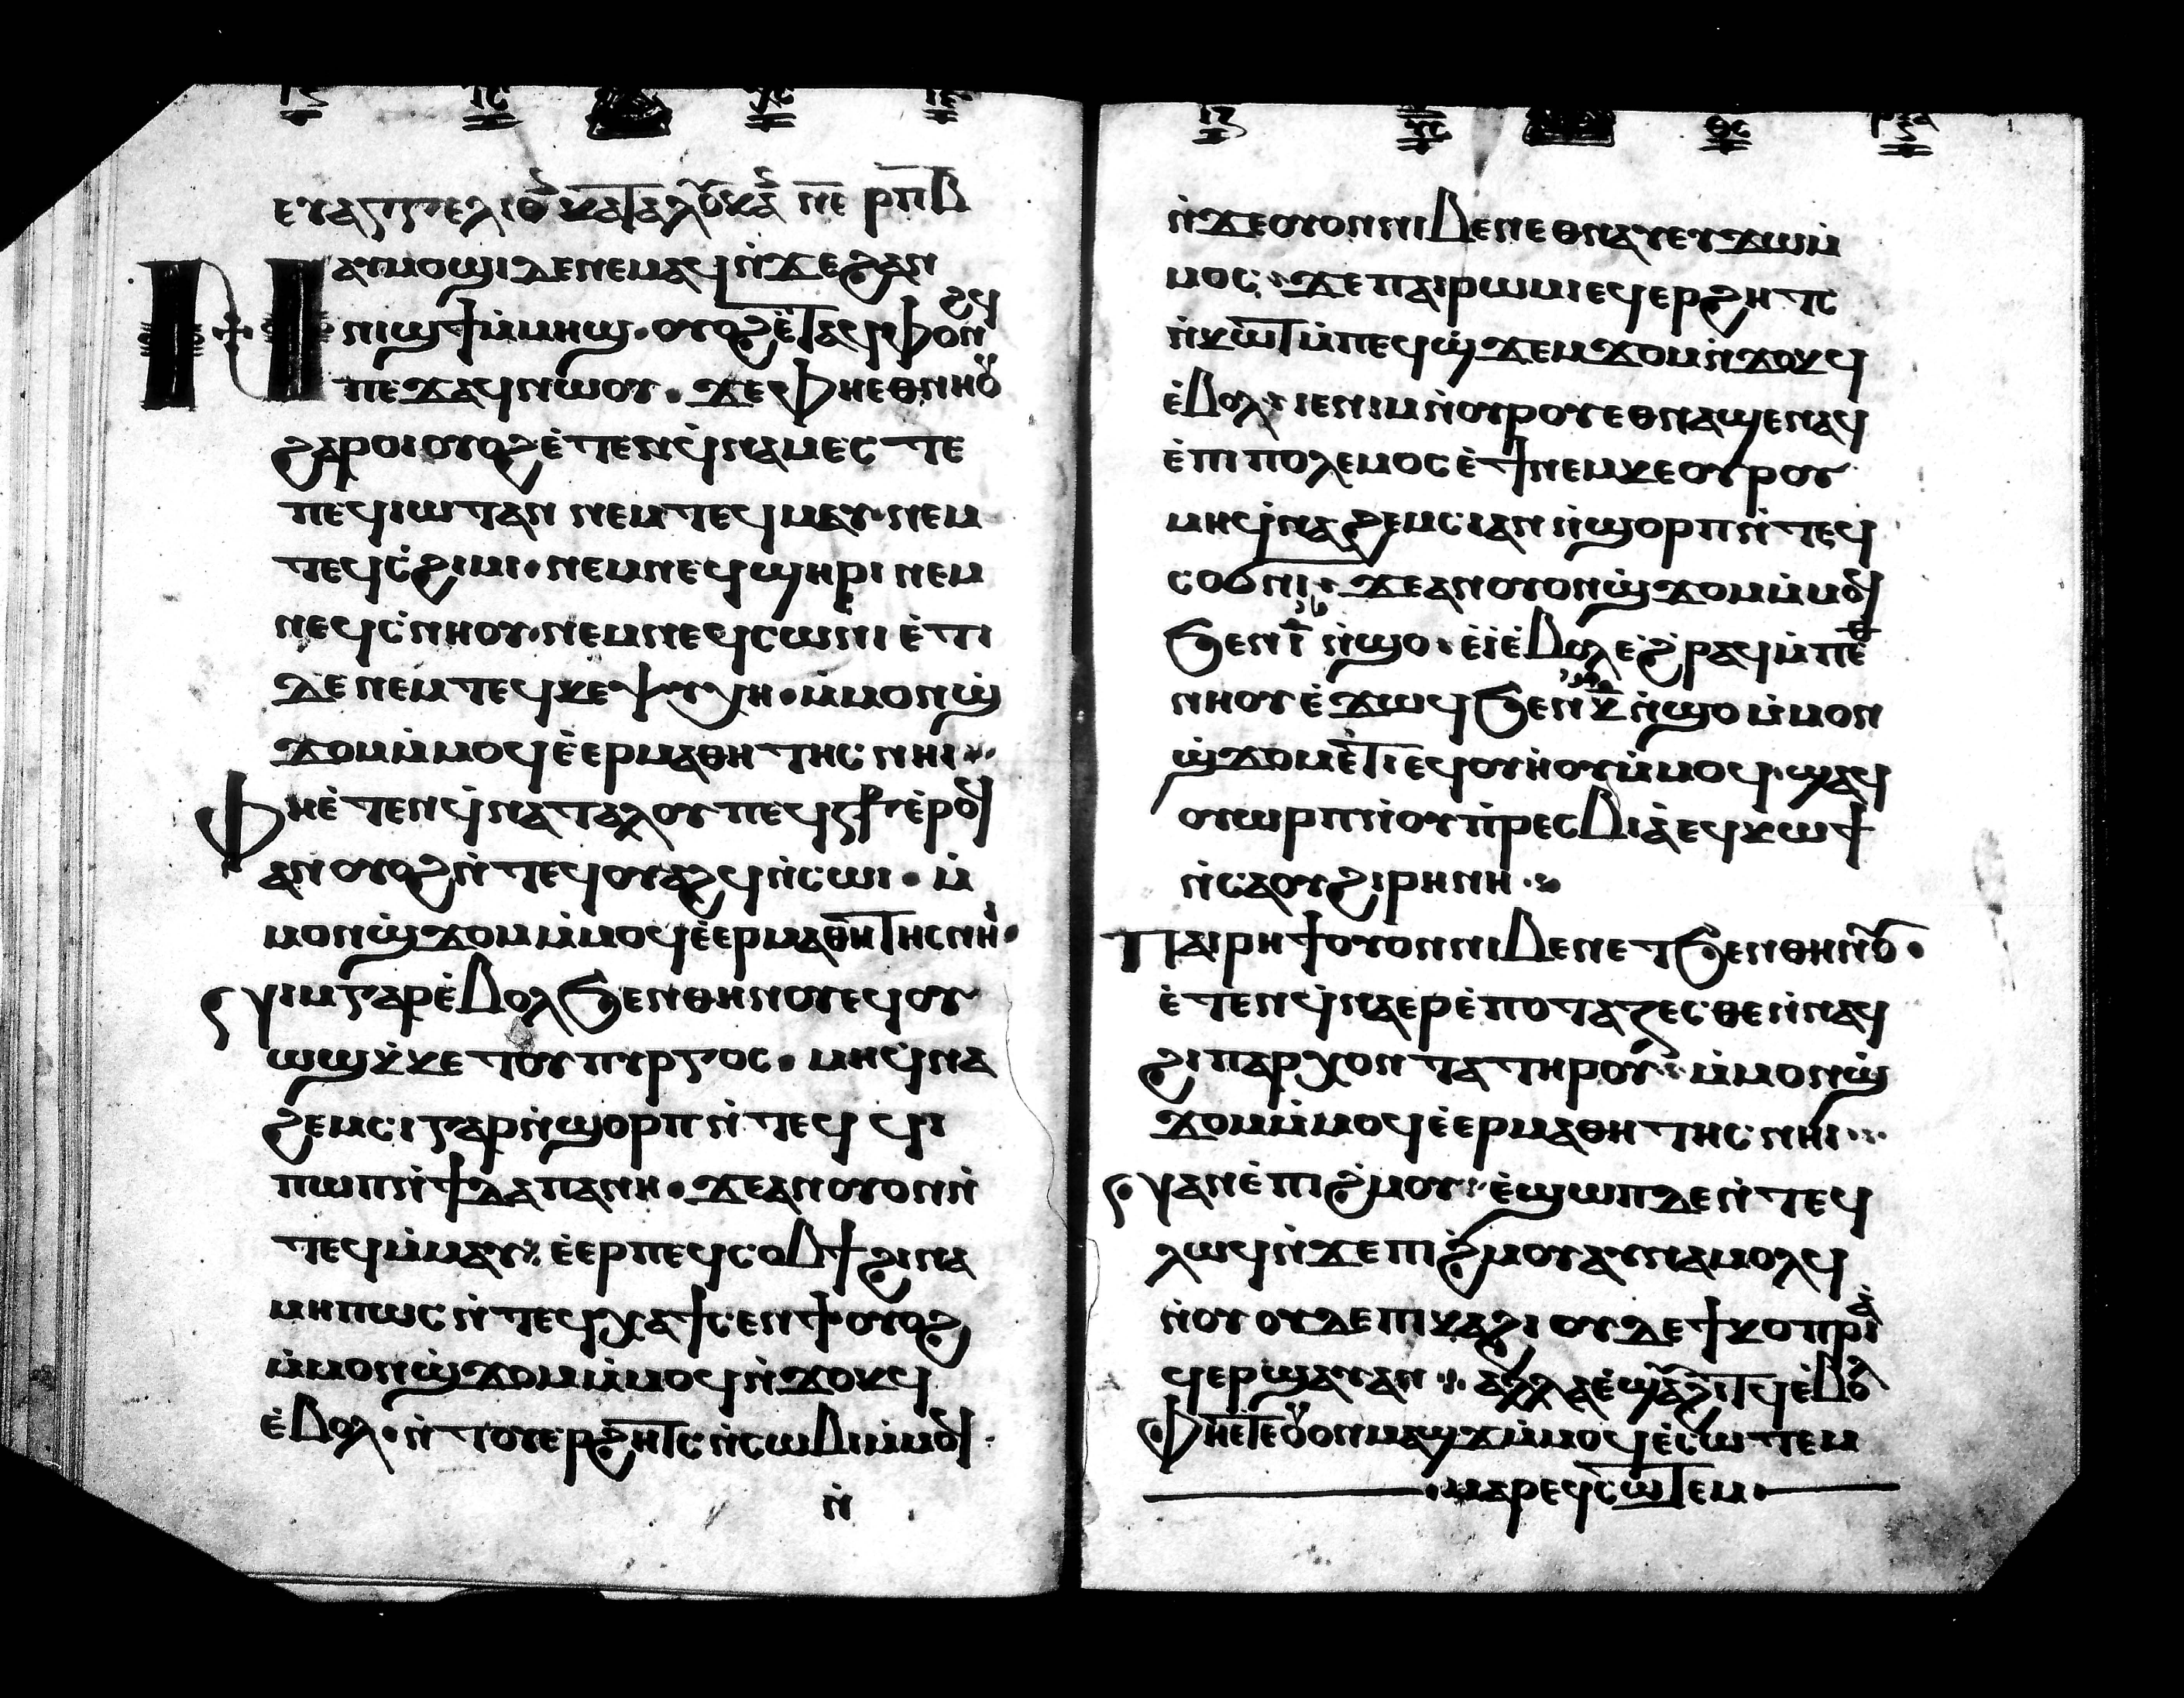 ⲉⲩⲁⲅⲅⲉⲗⲓⲟⲛ ⲕⲁⲧⲁ ⲗⲟⲩⲕⲁⲛ ⲛⲉ ⲣⲡⲃ
ⲛⲁⲩⲙⲟϣⲓ ⲇⲉ ⲛⲉⲙⲁϥ ⲛ̇ϫⲉ ϩⲁⲛ
ⲛⲓϣϯ ⲙ̇ⲙⲏϣ · ⲟⲩⲟϩ ⲉ̇ⲧⲁϥⲫⲟⲛϩϥ
ⲡⲉϫⲁϥ ⲛⲱⲟⲩ · ϫⲉ ⲫⲏⲉⲑⲛⲏⲟⲩ
ϩⲁⲣⲟⲓ ⲟⲩⲟϩ ⲉ̇ⲧⲉⲛϥ̇ⲛⲁⲙⲉⲥⲧⲉ
ⲡⲉϥⲓⲱⲧ ⲁⲛ ⲛⲉⲙ ⲧⲉϥⲙⲁⲩ · ⲛⲉⲙ
ⲧⲉϥⲥ̇ϩⲓⲙⲓ · ⲛⲉⲙ ⲛⲉϥϣⲏⲣⲓ ⲛⲉⲙ
ⲛⲉϥⲥ̇ⲛⲏⲟⲩ · ⲛⲉⲙ ⲛⲉϥⲥⲱⲛⲓ ⲉ̇ⲧⲓ
ⲇⲉ ⲛⲉⲙ ⲧⲉϥⲕⲉⲯⲩⲭⲏ · ⲙ̇ⲙⲟⲛ ϣ̇
ϫⲟⲙ ⲙ̇ⲙⲟϥ ⲉ̇ⲉⲣⲙⲁⲑⲏⲧⲏⲥ ⲛⲏⲓ
ⲫⲏⲉ̇ⲧⲉⲛϥ̇ⲛⲁⲧⲁⲗⲟ ⲩⲡⲉϥⲥ⳨ ⲉ̇ⲣⲟϥ
ⲁⲛ ⲟⲩⲟϩ ⲛ̇ⲧⲉϥⲟⲩⲁϩϥ ⲛ̇ⲥⲱⲓ · ⲙ̇
ⲙⲟⲛ ϣ̇ϫⲟⲙ ⲙ̇ⲙⲟϥ ⲉ̇ⲉⲣⲙⲁⲑⲏⲧⲏⲥ ⲛⲏⲓ ·
ⲛⲓⲙ ⲅⲁⲣ ⲉ̇ⲃⲟⲗ ϧⲉⲛ ⲑⲏⲛⲟⲩ ⲉϥⲟⲩ
ⲱϣ ⲕ̇ⲕⲉⲧ ⲟⲩⲡⲩⲣⲅⲟⲥ · ⲙⲏ ϥ̇ⲛⲁ
ϩⲉⲙⲥⲓ ⲅⲁⲣ ⲛ̇ϣⲟⲣⲡ ⲛ̇ⲧⲉϥϥⲓ
ⲡⲱⲡ ⲛ̇ϯⲇⲁⲡⲁⲛⲏ · ϫⲉ ⲁⲛ ⲟⲩⲟⲛ ⲛ̇
ⲧⲉϥ ⲙ̇ⲙⲁⲩ ⲉ̇ⲉⲣⲡⲉϥⲥⲟⲃϯ ϩⲓⲛⲁ
ⲙⲏⲡⲱⲥ ⲛ̇ⲧⲉϥⲭⲁ ϯⲥⲉⲛϯ ⲟⲩⲟϩ
ⲙ̇ⲙⲟⲛ ϣ̇ϫⲟⲙ ⲙ̇ⲙⲟϥ ⲛ̇ϫⲟⲕϥ
ⲉ̇ⲃⲟⲗ · ⲛ̇ⲧⲟⲩⲉⲣϩⲏⲧⲥ ⲛ̇ⲥⲱⲃⲓ ⲙ̇ⲙⲟϥ
ⲛ̇
ⲛ̇ϫⲉ ⲟⲩⲟⲛ ⲛⲓⲃⲉⲛ ⲉⲑⲛⲁⲩ ⲉⲩϫⲱ ⲙ̇
ⲙⲟⲥ · ϫⲉ ⲡⲁⲓⲣⲱⲙⲓ ⲉϥⲉⲣϩⲏⲧⲥ
ⲛ̇ⲕⲱⲧ ⲙ̇ⲡⲉϥϣ̇ϫⲉⲙϫⲟⲙ ⲛ̇ϫⲟⲕϥ
ⲉ̇ⲃⲟⲗ · ⲓⲉ ⲛⲓⲙ ⲛ̇ⲟⲩⲣⲟ ⲩⲉⲑⲛⲁϣⲉⲛⲁϥ
ⲉ̇ⲡⲓⲡⲟⲗⲉⲙⲟⲥ ⲉ̇ϯ ⲛⲉⲙ ⲕⲉⲟⲩⲣⲟⲩ
ⲙⲏ ϥ̇ⲛⲁϩⲉⲙⲥⲓ ⲁⲛ ⲛ̇ϣⲟⲣⲡ ⲛ̇ⲧⲉϥ
ⲥⲟϭⲛⲓ · ϫⲉ ⲁⲛ ⲟⲩⲟⲛ ϣ̇ϫⲟⲙ ⲙ̇ⲙⲟϥ
ϧⲉⲛ ⲓ̅ ⲛ̇ϣⲟ · ⲉ̇ⲓ̇ ⲉ̇ⲃⲟⲗ ⲉ̇ϩⲣⲁϥ ⲙ̇ⲡⲉⲑ
ⲛⲏⲟⲩ ⲉ̇ϫⲱϥ ϧⲉⲛ ⲕ̅ ⲛ̇ϣⲟ ⲙ̇ⲙⲟⲛ
ϣ̇ϫⲟⲙ ⲉ̇ⲧⲓ ⲉϥⲟⲩⲏⲟⲩ ⲙ̇ⲙⲟϥ · ϣⲁϥ
ⲟⲩⲱⲣⲡ ⲛ̇ⲟⲩⲡ̇ⲣⲉⲥⲃⲓⲁ̇ ⲉϥⲕⲱϯ
ⲛ̇ⲥⲁ ⲟⲩϩⲓⲣⲏⲛⲏ
ⲡⲁⲓⲣⲏϯ ⲟⲩⲟⲛ ⲛⲓⲃⲉⲛ ⲉⲧϧⲉⲛ ⲑⲏⲛⲟⲩ ·
ⲉ̇ⲧⲉⲛϥ̇ⲛⲁⲉⲣⲉ̇ⲡⲟⲧⲁⲍⲉⲥⲑⲉ ⲛ̇ⲛⲁϥ
ϩⲓⲡⲁⲣⲭⲟⲛⲧⲁ ⲧⲏⲣⲟⲩ ⲙ̇ⲙⲟⲛ ϣ̇
ϫⲟⲙ ⲙ̇ⲙⲟϥ ⲉ̇ⲉⲣⲙⲁⲑⲏⲧⲏⲥ ⲛⲏⲓ
ⲛⲁⲛⲉ ⲡⲓϩⲙⲟⲩ ⲉ̇ϣⲱⲡ ⲇⲉ ⲛ̇ⲧⲉϥ
ⲗⲱϥ ⲛ̇ϫⲉ ⲡⲓϩⲙⲟⲩ ⲁⲩⲛⲁⲙⲟⲗϩϥ
ⲛ̇ⲟⲩ ⲟⲩⲇⲉ ⲡⲓⲕⲁϩⲓ ⲟⲩⲇⲉ ϯⲕⲟⲡⲣⲓⲁ̇
ϥⲉⲣϣⲁⲩ ⲁⲛ ⲁⲗⲗⲁ ⲉ̇ϣⲁϩⲓⲧϥ ⲉ̇ⲃⲟⲗ
ⲫⲏⲉ̇ⲧⲉ ⲟⲩⲟⲛ ⲙⲁϣϫ ⲙ̇ⲙⲟϥ ⲉ̇ⲥⲱⲧⲉⲙ
ⲙⲁⲣⲉϥⲥⲱⲧⲉⲙ